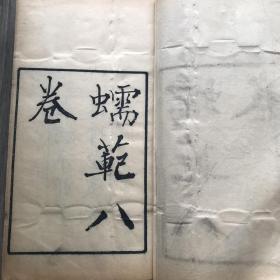 蠕範八
卷